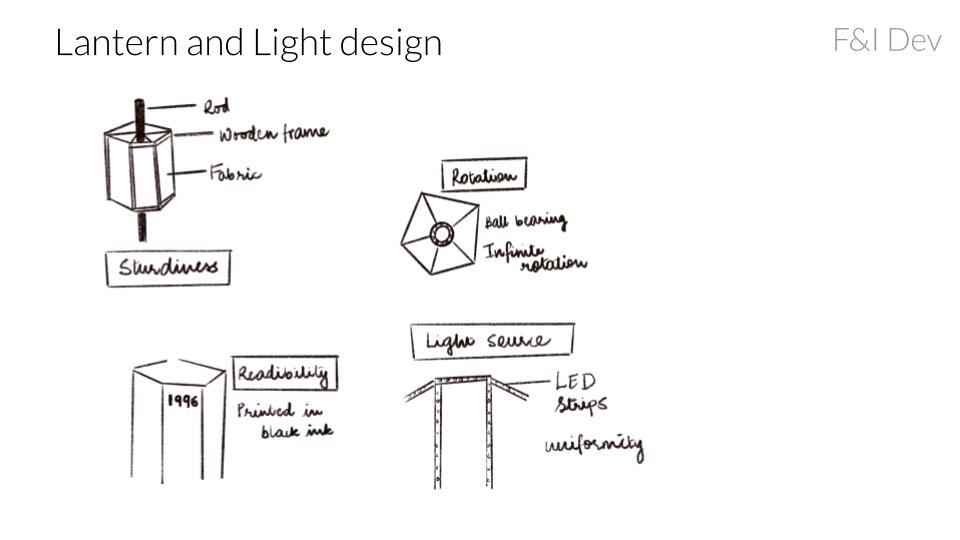 Lantern and Light design
F&I Dev
Rod
Wooden frame
Fabric
Sturdiness
Rotation
Ball bearing
Infinite
rotation
Readibility
1996
Printed in
black ink
Light source
LED
Strips
uniformity